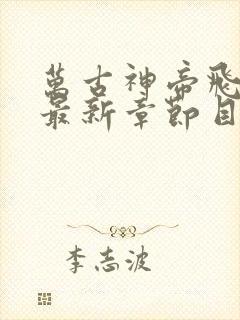 萬古神帝飛
最新章節目
李志波